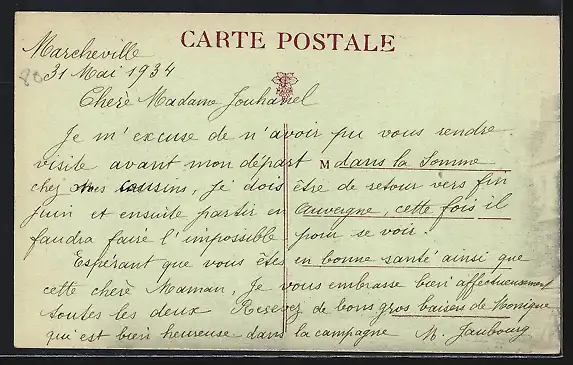 CARTE POSTALE
Marcheville
80
31 Mai 1934
Cherè Madame Jouhaniel
Je m'excuse de n'avoir pu vous rendre
visite avant mon départ M dans la Somme
chez mes cousins, je dois être de retour vers fin
juin et ensuite partir en Auvergne, cette fois il
faudra faire l'impossible pour se voir.
Espérant que vous êtes en bonne santé ainsi que
cette cherè Maman, je vous embrasse bien affectueusement
toutes les deux Recevez de bons gros baisers de Monique
qui est bien heureuse dans la campagne M. Jaubourg